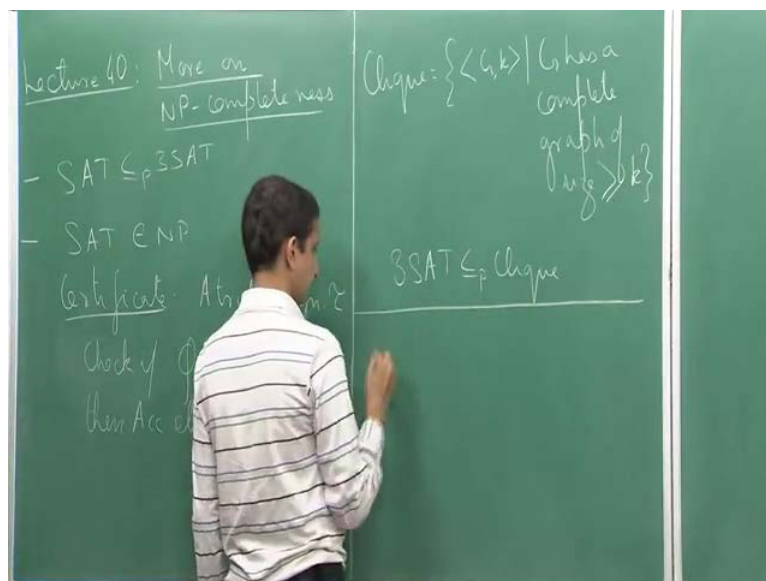 Lecture 40: More on
NP-completeness
- SAT ≤p 3SAT
- SAT ∈ NP
Certificate: A
Check if
then Acc
Clique = {<G,k> | G has a
complete
graph of
size ≥ k}
3SAT ≤p Clique